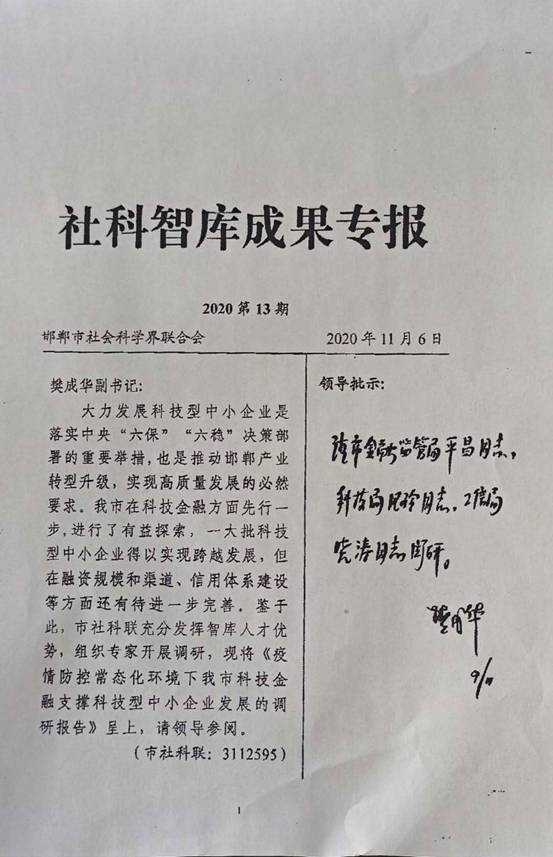 社科智库成果专报
2020 第 13 期
邯郸市社会科学界联合会
2020 年 11 月 6 日
樊成华副书记:
大力发展科技型中小企业是
落实中央“六保”“六稳”决策部
署的重要举措,也是推动邯郸产业
转型升级,实现高质量发展的必然
要求。我市在科技金融方面先行一
步,进行了有益探索,一大批科技
型中小企业得以实现跨越发展,但
在融资规模和渠道、信用体系建设
等方面还有待进一步完善。鉴于
此,市社科联充分发挥智库人才优
势,组织专家开展调研,现将《疫
情防控常态化环境下我市科技金
融支撑科技型中小企业发展的调
研报告》呈上,请领导参阅。
(市社科联:3112595)
领导批示:
监管局平昌同志,
科技局同志,工信局
同志阅研。
9/11
1